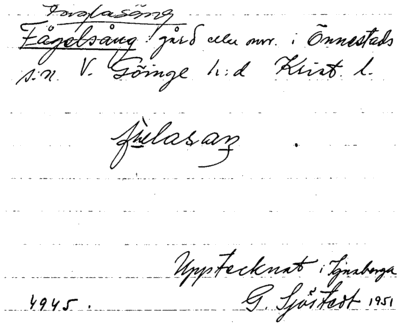 Fåglasång
Fågelsång: gård eller mr. i Önnestads
s:n V. Göinge h:d Krist l.
fúlasaŋ
Upptecknat i Ignaberga
4945. G. Sjöstedt 1951